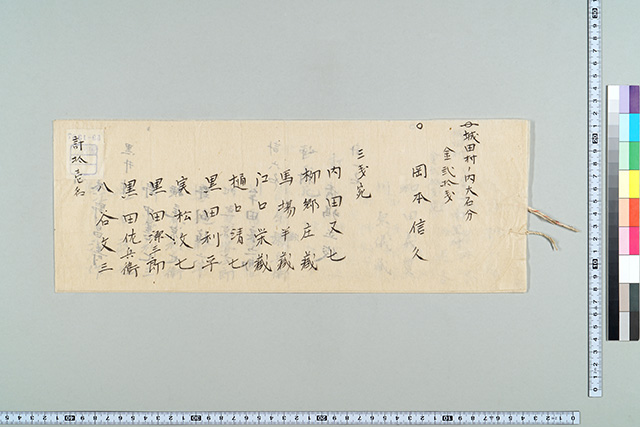 城田村ノ内大石分
金弐拾戔
岡本信久
三戔宛
内田又七
柳郷庄蔵
馬場羊蔵
江口栄蔵
樋口清七
黒田利平
実松文七
黒田深三郎
黒田佐兵衛
八谷文三
計拾壱名